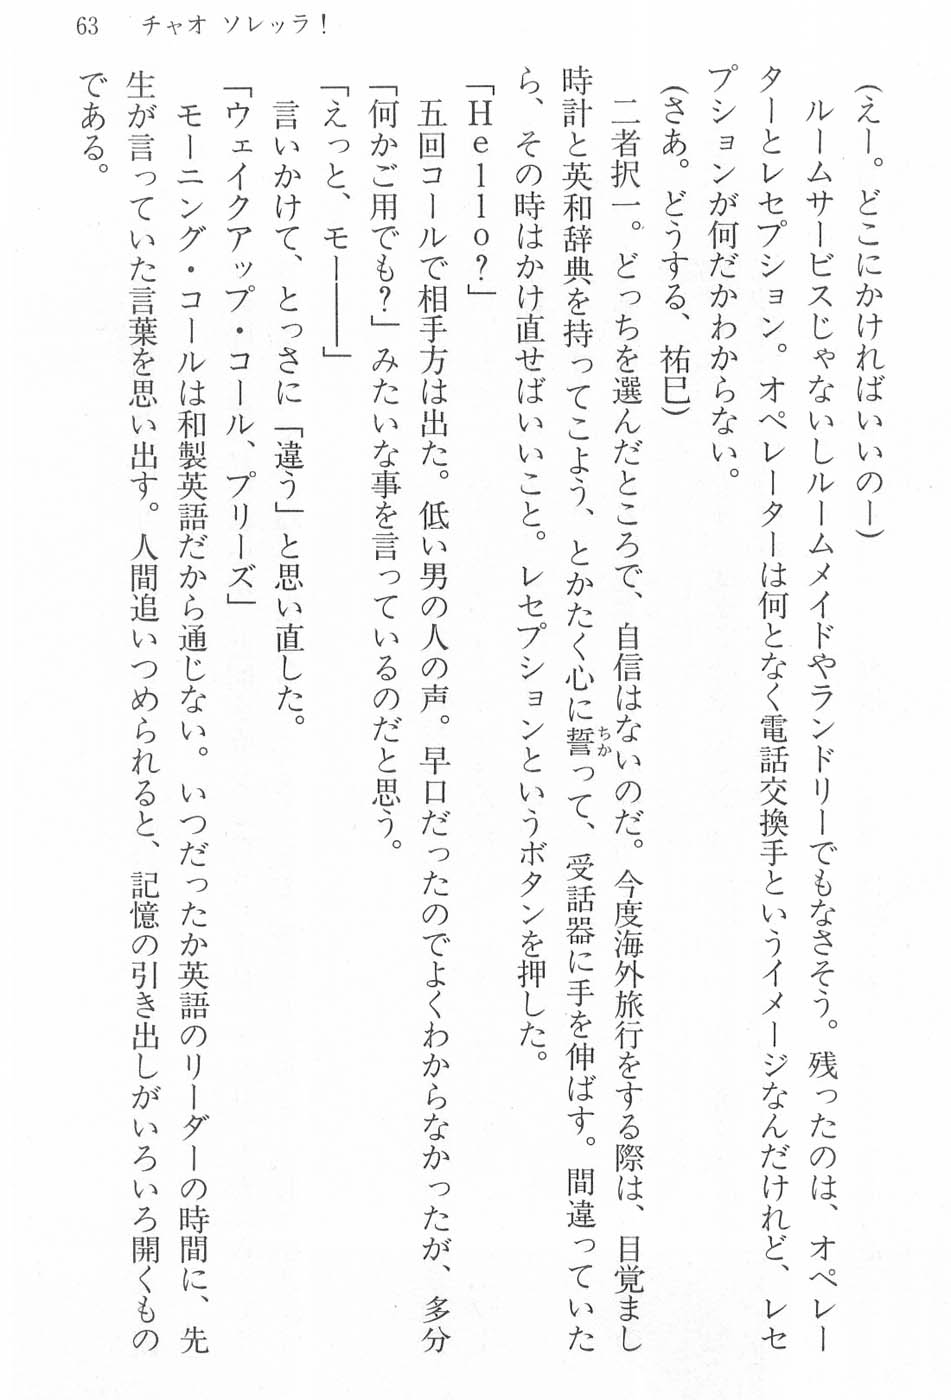 63　チャオ ソレッラ！
（えー。どこにかければいいのー）
ルームサービスじゃないしルームメイドやランドリーでもなさそう。残ったのは、オペレー
ターとレセプション。オペレーターは何となく電話交換手というイメージなんだけれど、レセ
プションが何だかわからない。
（さあ。どうする、祐巳）
二者択一。どっちを選んだところで、自信はないのだ。今度海外旅行をする際は、目覚まし
時計と英和辞典を持ってこよう、とかたく心に誓（ちか）って、受話器に手を伸ばす。間違っていた
ら、その時はかけ直せばいいこと。レセプションというボタンを押した。
「Hello?」
五回コールで相手方は出た。低い男の人の声。早口だったのでよくわからなかったが、多分
「何かご用でも？」みたいな事を言っているのだと思う。
「えっと、モー――」
言いかけて、とっさに「違う」と思い直した。
「ウェイクアップ・コール、プリーズ」
モーニング・コールは和製英語だから通じない。いつだったか英語のリーダーの時間に、先
生が言っていた言葉を思い出す。人間追いつめられると、記憶の引き出しがいろいろ開くもの
である。